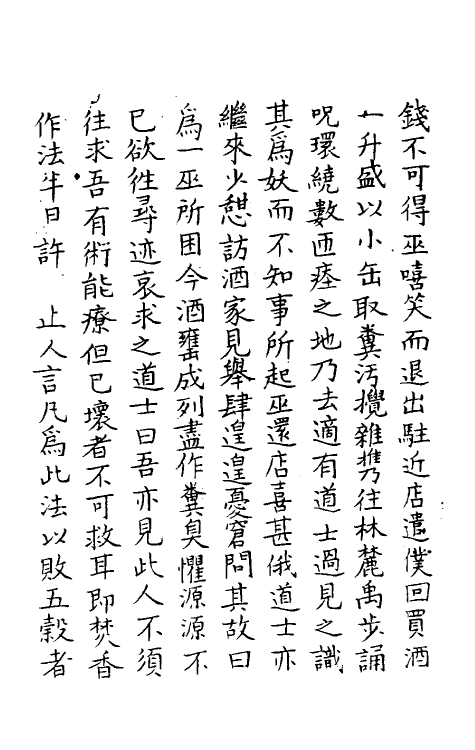 錢不可得巫嘻笑而退出駐近店遣僕回買酒
一升盛以小缶取糞汚攪雜攜往林麓禹步誦
呪環繞數匝瘞之地乃去適有道士過見之識
其爲妖而不知事所起巫還店喜甚俄道士亦
繼來少憇訪酒家見舉肆遑遑憂窘問其故曰
爲一巫所困今酒甕成列盡作糞臭懼源源不
已欲徃尋迹哀求之道士曰吾亦見此人不須
往求吾有術能療但已壞者不可救耳即焚香
作法半日許 止人言凡爲此法以敗五糓者